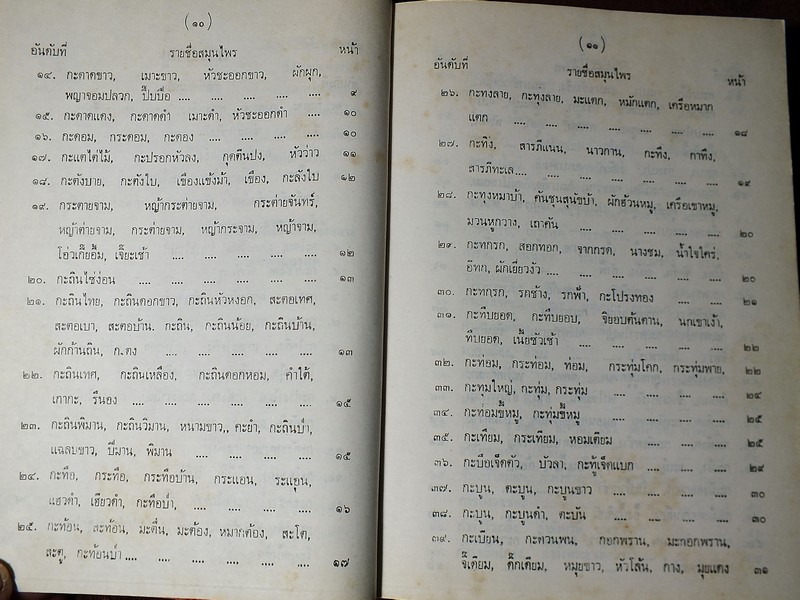 (๑๐)
อันดับที่ รายชื่อสมุนไพร หน้า
๑๔. กะดาดขาว, เมาะขาว, หัวชะออกขาว, ผักผุก,
พญาจอมปลวก, ปึ๋มปื้อ .... .... .... .... .... ๙
๑๕. กะดาดแดง, กะดาดดำ เมาะดำ, หัวชะออกดำ .... ๑๐
๑๖. กะดอม, กระดอม, กะดอง .... .... .... .... ๑๐
๑๗. กะแตไต่ไม้, กะปรอกหัวลง, กุดตีนปง, หัวว่าว ๑๑
๑๘. กะตังบาย, กะตังใบ, เขืองแข้งม้า, เขือง, กะลังใบ ๑๒
๑๙. กระตายจาม, หญ้ากระต่ายจาม, กระต่ายจันทร์,
หญ้าต่ายจาม, กระต่ายจาม, หญ้ากระจาม, หญ้าจาม,
โฮ่วเกี๋ยอึ้ม, เจี๊ยะเช้า .... .... .... .... .... ๑๒
๒๐. กะถินไซ่ง่อน .... .... .... .... .... .... ๑๓
๒๑. กะถินไทย, กะถินดอกขาว, กะถินหัวหงอก, สะตอเทศ,
สะตอเบา, สะตอบ้าน, กะถิน, กะถินน้อย, กะถินบ้าน,
ผักก้านถิน, กะตง .... .... .... .... .... ๑๓
๒๒. กะถินเทศ, กะถินเหลือง, กะถินดอกหอม, คำใต้,
เกากะ, รืนอง .... .... .... .... .... .... ๑๕
๒๓. กะถินพิมาน, กะถินวิมาน, หนามขาว,, คะยา, กะถินป่า,
แฉลบขาว, ปี้มาน, พิมาน .... .... .... .... ๑๕
๒๔. กะทือ, กระทือ, กระทือบ้าน, กระแอน, ระแอน,
แฮวดำ, เฮียวดำ, กะทือป่า, .... .... .... .... ๑๖
๒๕. กะท้อน, สะท้อน, มะติ๋น, มะต้อง, หมากต้อง, สะโต,
สะตู, กะท้อนป่า .... .... .... .... .... .... ๑๗
(๑๑)
อันดับที่ รายชื่อสมุนไพร หน้า
๒๖. กะทงลาย, กะทุงลาย, มะแตก, หมักแตก, เครือหมาก
แตก .... .... .... .... .... .... ๑๘
๒๗. กะทิง, สารภีแนน, นาวกาน, กะทึง, กาทึง,
สารภีทะเล.... .... .... .... .... .... ๑๙
๒๘. กะทุงหมาบ้า, คันชุนสุนัขบ้า, ผักฮ้วนหมู, เครือเขาหมู,
มวนหูกวาง, เถาคัน .... .... .... .... .... ๒๐
๒๙. กะทกรก, สอกทอก, จากกรด, นางชม, น้ำใจใคร่,
อีทก, ผักเยี่ยวงัว .... .... .... .... .... ๒๐
๓๐. กะทกรก, รกช้าง, รกฟ้า, กะโปรงทอง .... .... ๒๑
๓๑. กะทืบยอด, กะทืบยอบ, จิยอบต้นตาน, นกเขาเง้า,
ทืบยอด, เนี้ยซัวเช้า .... .... .... .... .... ๒๒
๓๒. กะท่อม, กระท่อม, ท่อม, กระทุ่มโคก, กระทุ่มพาย, ๒๒
๓๓. กะทุมใหญ่, กะทุ่ม, กระทุ่ม .... .... .... .... ๒๔
๓๔. กะท่อมขี้หมู, กะทุ่มขี้หมู .... .... .... .... ๒๕
๓๕. กะเทียม, กระเทียม, หอมเตียม .... .... .... ๒๕
๓๖. กะบือเจ็ดตัว, บัวลา, กะทู้เจ็ดแบก .... .... .... ๒๙
๓๗. กะบูน, ตะบูน, กะบูนขาว .... .... .... .... ๓๐
๓๘. กะบูน, กะบูนดำ, ตะบัน .... .... .... .... ๓๐
๓๙. กะเบียน, กะดวนพน, กอกพราน, มะกอกพราน,
จี้เดียม, ดั๊กเดียม, หมุยขาว, หัวโล้น, กาง, มุยแดง ๓๑